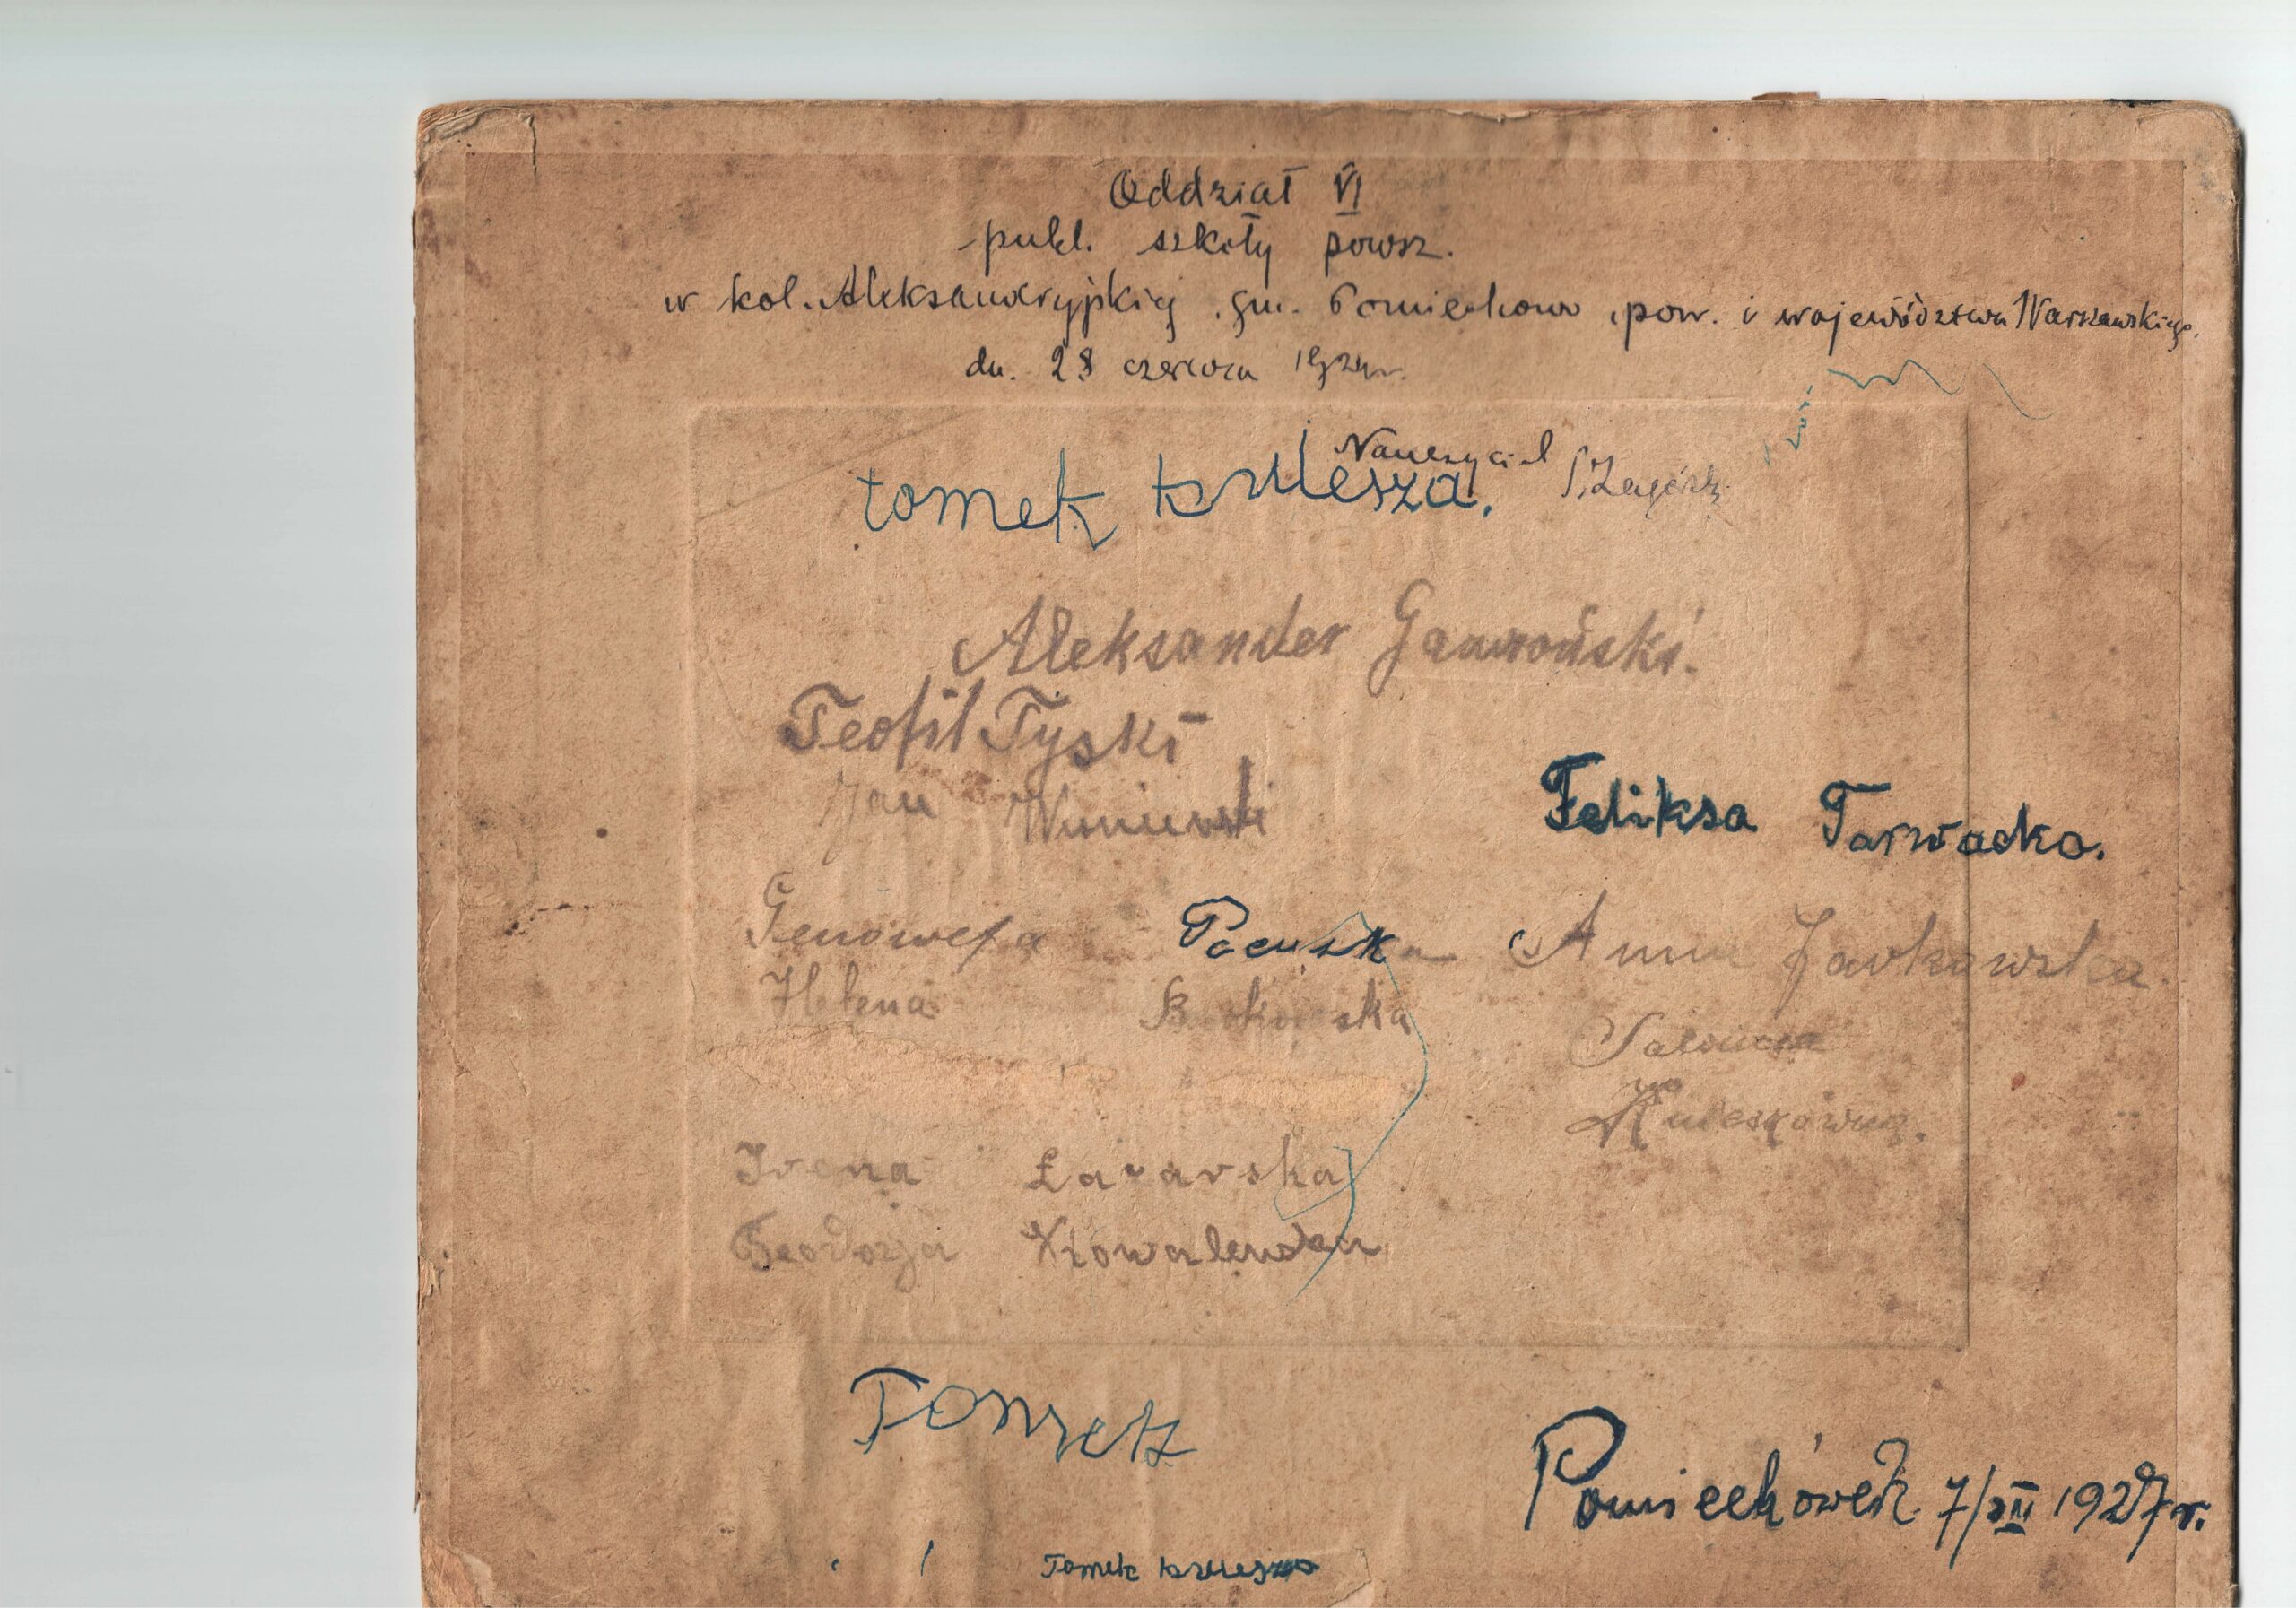 Oddział VI
publ. szkoły powsz.
w kol. Aleksandryjskiej, gm. Pomiechowo, pow. i województwa Warszawskiego.
dn. 28 czerwca
Nauczyciel
tomek kulesza.
Aleksander Gawroński.
Teofil Tyski
Jan Wisniewski
Feliksa Tarwacka.
Genowefa Pacuska Anna Jankowska
Helena
Salomea
Kuleszówna.
Irena
Teodozja Kowalewska
Tomek
Pomiechówek 7/XII 1927 r.
Tomek kulesza